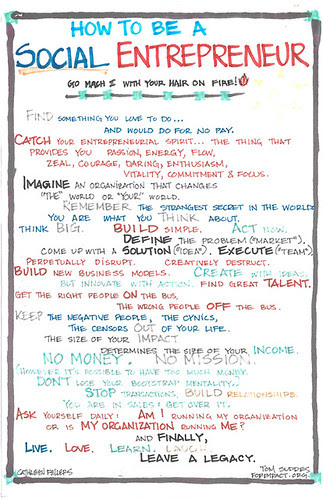 HOW TO BE A
SOCIAL ENTREPRENEUR
GO MACH 2 WITH YOUR HAIR ON FIRE!
FIND SOMETHING YOU LOVE TO DO...
AND WOULD DO FOR NO PAY.
CATCH YOUR ENTREPRENEURIAL SPIRIT... THE THING THAT
PROVIDES YOU PASSION, ENERGY, FLOW,
ZEAL, COURAGE, DARING, ENTHUSIASM,
VITALITY, COMMITMENT & FOCUS.
IMAGINE AN ORGANIZATION THAT CHANGES
"THE" WORLD OR "YOUR" WORLD.
REMEMBER THE STRANGEST SECRET IN THE WORLD:
YOU ARE WHAT YOU THINK ABOUT.
THINK BIG. BUILD SIMPLE. ACT NOW.
DEFINE THE PROBLEM ("MARKET").
COME UP WITH A SOLUTION ("IDEA"). EXECUTE ("TEAM").
PERPETUALLY DISRUPT. CREATIVELY DESTRUCT.
BUILD NEW BUSINESS MODELS. CREATE WITH IDEAS.
BUT INNOVATE WITH ACTION. FIND GREAT TALENT.
GET THE RIGHT PEOPLE ON THE BUS,
THE WRONG PEOPLE OFF THE BUS.
KEEP THE NEGATIVE PEOPLE, THE CYNICS,
THE CENSORS OUT OF YOUR LIFE.
THE SIZE OF YOUR IMPACT
DETERMINES THE SIZE OF YOUR INCOME.
NO MONEY. NO MISSION.
(HOWEVER IT'S POSSIBLE TO HAVE TOO MUCH MONEY.
DON'T LOSE YOUR BOOTSTRAP MENTALITY.)
STOP TRANSACTIONS, BUILD RELATIONSHIPS.
YOU ARE IN SALES! GET OVER IT.
ASK YOURSELF DAILY: AM I RUNNING MY ORGANIZATION
OR IS MY ORGANIZATION RUNNING ME?
AND FINALLY,
LIVE. LOVE. LEARN. LAUGH.
LEAVE A LEGACY.
CATHLEEN FELLERS
TOM SUDDES
FORIMPACT.ORG